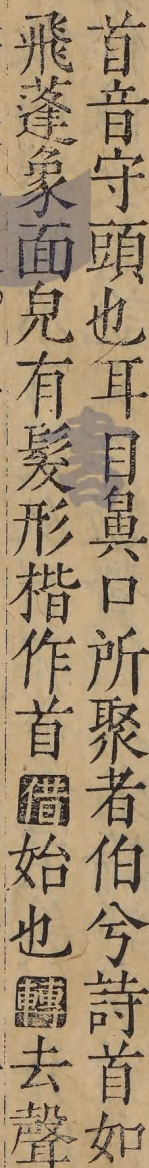 首音守頭也耳目鼻口所聚者伯兮詩首如
飛蓬象面皃有髮形楷作首借始也轉去聲